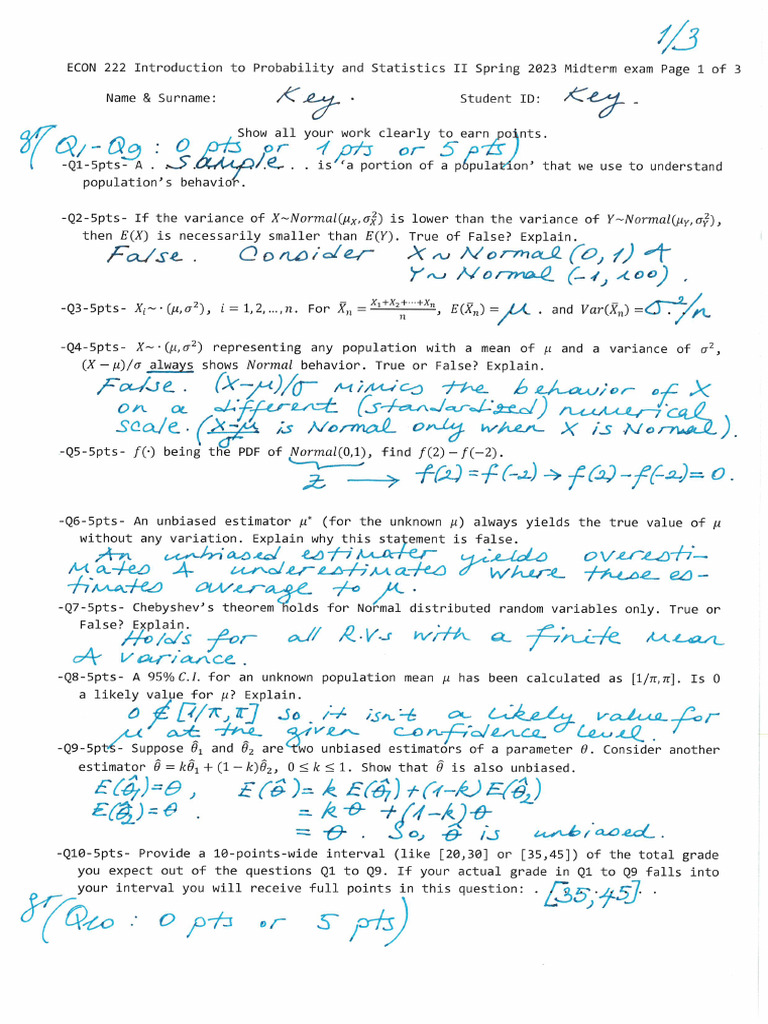 1/3
ECON 222 Introduction to Probability and Statistics II Spring 2023 Midterm exam Page 1 of 3
Name & Surname: Key. Student ID: Key.
Show all your work clearly to earn points.
gr(Q1-Q9: 0 pts or 1 pts or 5 pts)
-Q1-5pts- A . sample . . is 'a portion of a population' that we use to understand
population's behavior.
-Q2-5pts- If the variance of X~Normal(μ_X,σ²_X) is lower than the variance of Y~Normal(μ_Y,σ²_Y),
then E(X) is necessarily smaller than E(Y). True of False? Explain.
False. Consider X ~ Normal (0,1) &
Y ~ Normal (-1, 100).
-Q3-5pts- X_i~·(μ,σ²), i = 1,2,…,n. For X̄_n = (X₁+X₂+⋯+X_n)/n, E(X̄_n) = μ . and Var(X̄_n) = σ²/n
-Q4-5pts- X~·(μ,σ²) representing any population with a mean of μ and a variance of σ²,
(X − μ)/σ always shows Normal behavior. True or False? Explain.
False. (X-μ)/σ mimics the behavior of X
on a different (standardized) numerical
scale. (X-μ/σ is Normal only when X is Normal).
-Q5-5pts- f(·) being the PDF of Normal(0,1), find f(2) − f(−2).
Z → f(2)=f(-2) → f(2)-f(-2)=0.
-Q6-5pts- An unbiased estimator μ* (for the unknown μ) always yields the true value of μ
without any variation. Explain why this statement is false.
An unbiased estimater yields overesti-
mates & underestimates where these es-
timates average to μ.
-Q7-5pts- Chebyshev's theorem holds for Normal distributed random variables only. True or
False? Explain.
Holds for all R.Vs with a finite mean
& variance.
-Q8-5pts- A 95% C.I. for an unknown population mean μ has been calculated as [1/π,π]. Is 0
a likely value for μ? Explain.
0 ∉ [1/π,π] so it isn't a likely value for
μ at the given confidence level.
-Q9-5pts- Suppose θ̂₁ and θ̂₂ are two unbiased estimators of a parameter θ. Consider another
estimator θ̂ = kθ̂₁ + (1 − k)θ̂₂, 0 ≤ k ≤ 1. Show that θ̂ is also unbiased.
E(θ̂₁)=θ, E(θ̂)= k E(θ̂₁)+(1-k)E(θ̂₂)
E(θ̂₂)=θ. = kθ +(1-k)θ
= θ. So, θ̂ is unbiased.
-Q10-5pts- Provide a 10-points-wide interval (like [20,30] or [35,45]) of the total grade
you expect out of the questions Q1 to Q9. If your actual grade in Q1 to Q9 falls into
your interval you will receive full points in this question: . [35,45] . .
gr(Q10: 0 pts or 5 pts)